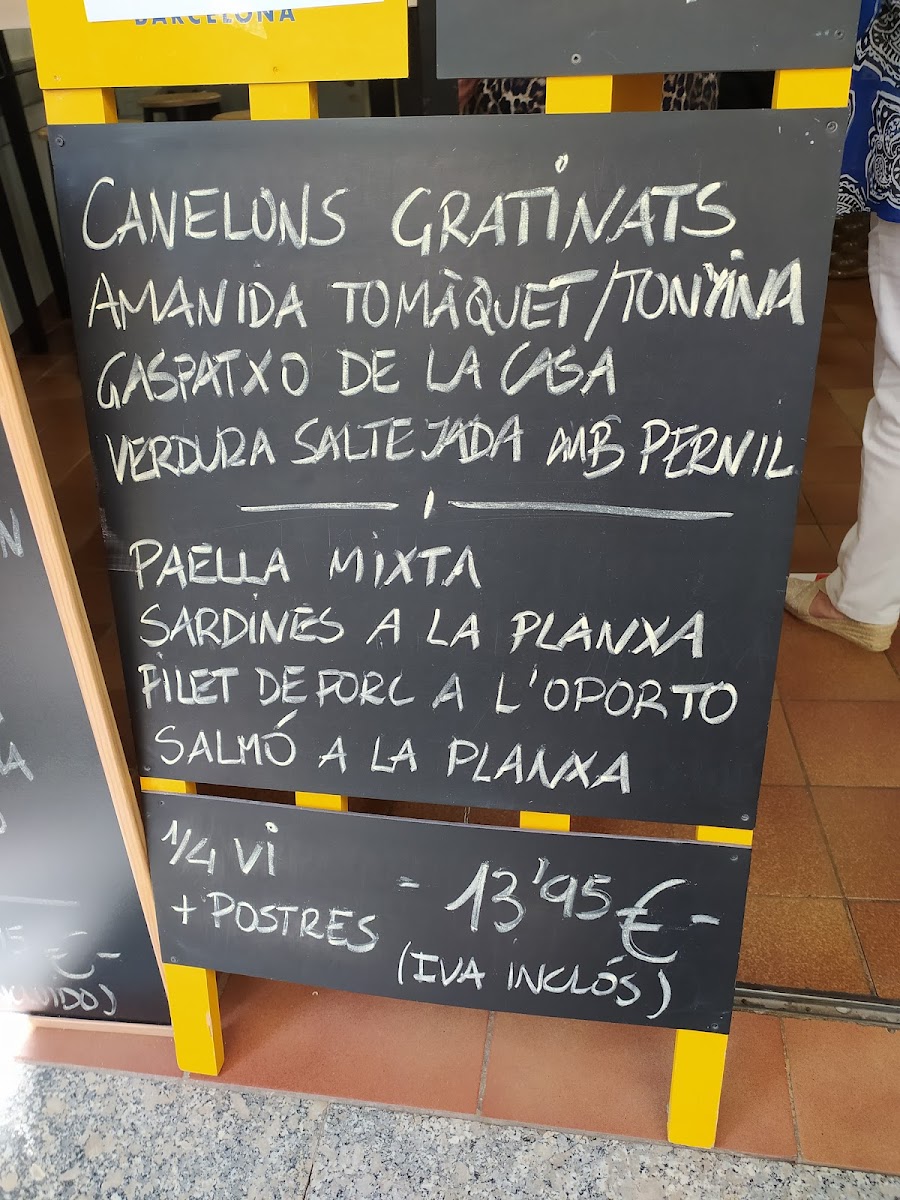 BARCELONA
CANELONS GRATINATS
AMANIDA TOMÀQUET/TONYINA
GASPATXO DE LA CASA
VERDURA SALTEJADA AMB PERNIL
PAELLA MIXTA
SARDINES A LA PLANXA
FILET DE PORC A L'OPORTO
SALMÓ A LA PLANXA
1/4 VI
+ POSTRES - 13'95 €-
(IVA INCLÓS)